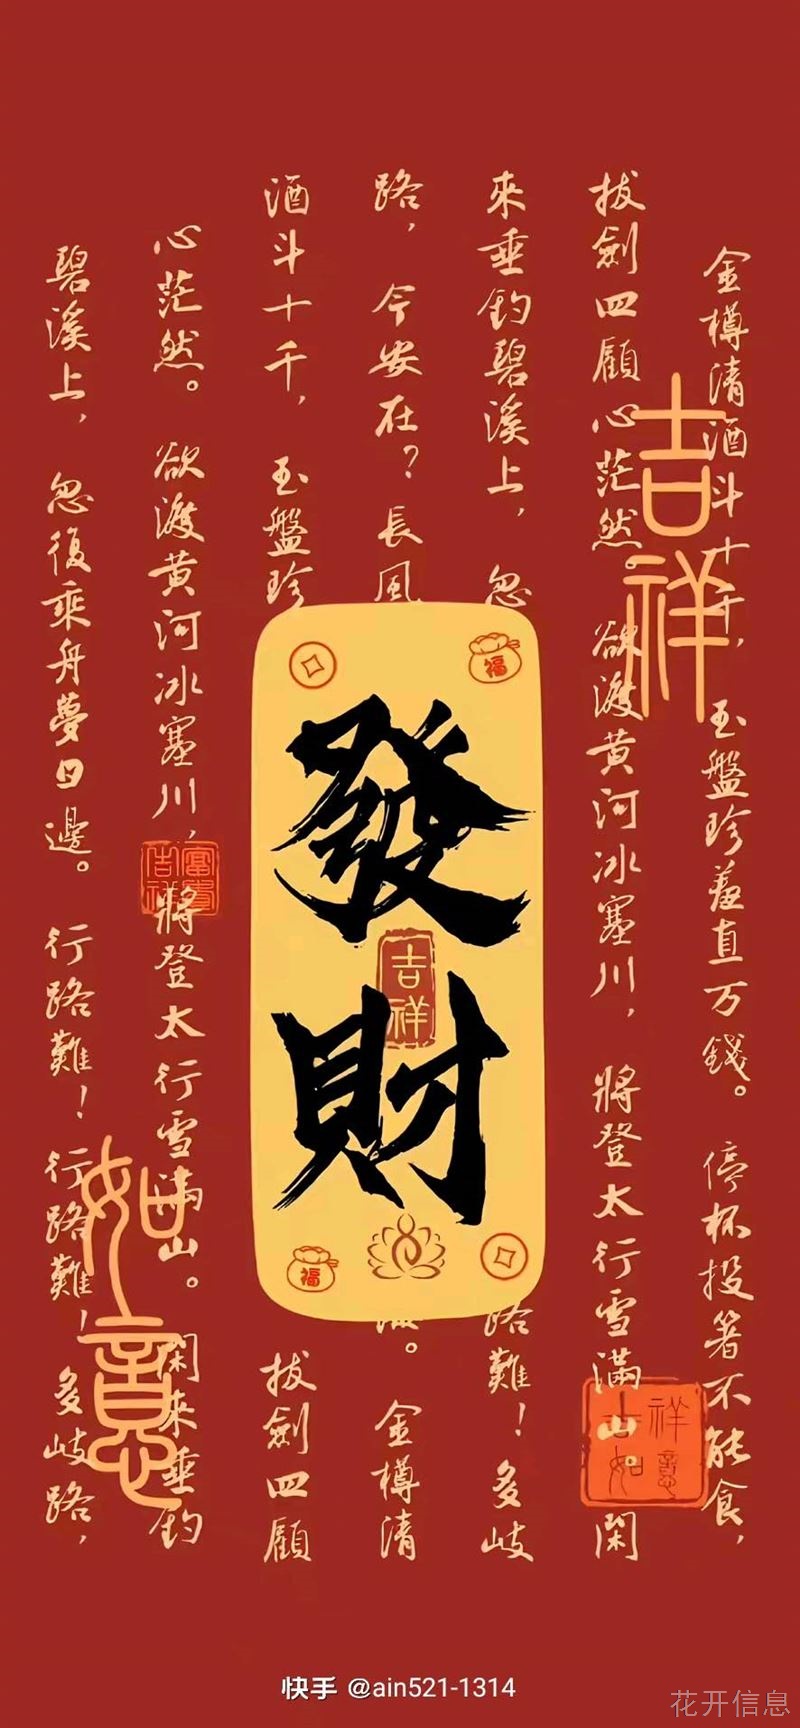 金樽清酒斗十千,玉盤珍羞直万錢。停杯投箸不能食,
拔劍四顧心茫然。欲渡黄河冰塞川,將登太行雪滿山。閑
來垂釣碧溪上,忽
路難!多岐
路,今安在?長風
。金樽清
酒斗十千,玉盤珍
拔劍四顧
心茫然。欲渡黄河冰塞川,將登太行雪滿山。閑來垂釣
碧溪上,忽復乘舟夢日邊。行路難!行路難!多岐路,
吉祥
如意
福
發財
吉祥
福
富貴
吉祥
祥意
吉如
快手 @ain521-1314
花开信息